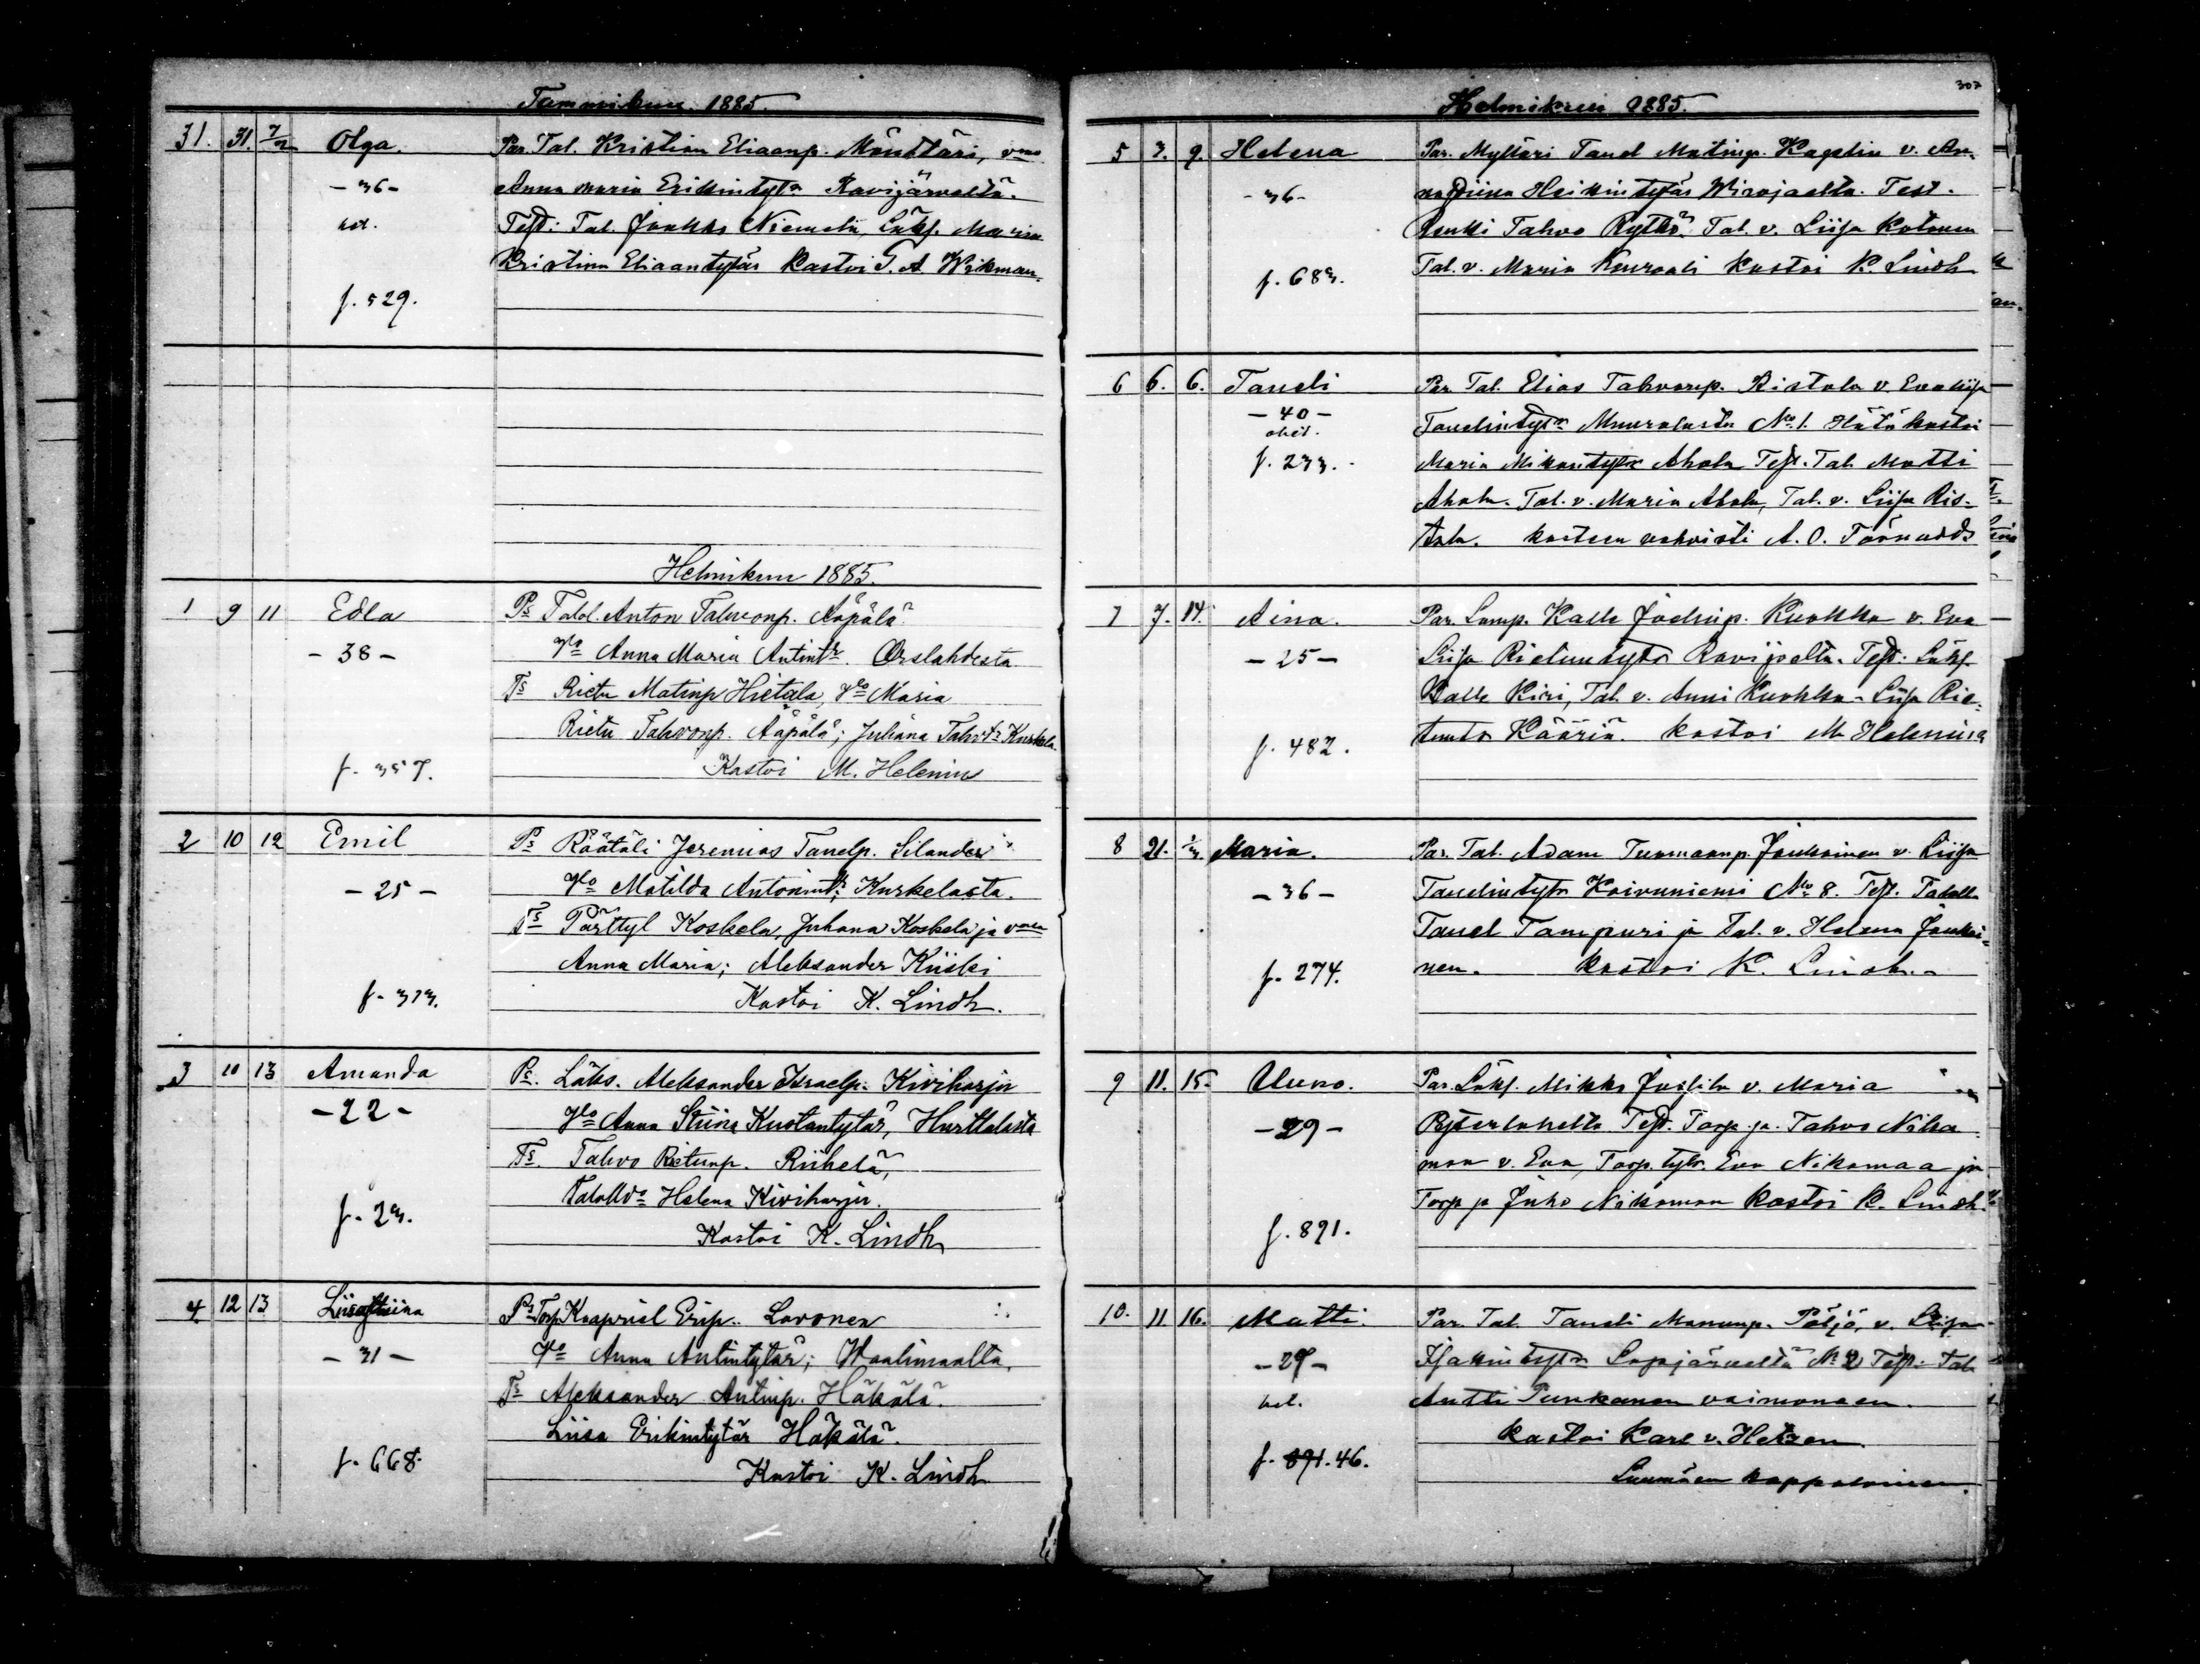 Tammikuu. 1885.
31. 31. 7/2 Olga. Par. Tal. Kristian Eliaanp. Mänttäri, vmo
- 36 - Anna Maria Erikintytr Ravijärveltä.
Test: Tal. Jaakko Niemelä, Läksl. Maria
Kristina Eliaantytär kastoi G. A. Wikman.
f. 529.
Helmikuu 1885.
1 9 11 Edla Ps Talol. Anton Tahvonp. Ääpälä
- 38 - Vo Anna Maria Antintr. Orslahdesta
Ts Rietu Matinp Hietala, Vmo Maria
Rietu Tahvonp. Ääpälä; Juliana Tahvtr Kurkela
f. 357. Kastoi M. Helenius
2 10 12 Emil Ps Räätäli Jeremias Tanelp. Silander
- 25 - Vo Matilda Antonint; Kurkelasta.
Ts Pärttyl Koskela, Juhana Koskela ja vmon
Anna Maria; Aleksander Kiiski
f. 313. Kastoi K. Lindh.
3 10 13 Amanda Ps. Läks. Aleksander Israelp. Kiviharju
- 22 - Vmo Anna Stiina Kustantytär, Hurttalasta
Ts. Tahvo Rietunp. Riihelä,
Helena Kiviharju.
f. 23. Kastoi K. Lindh
4 12 13 Liisa Stiina Ps Torp Kaapriel Erip. Lavonen
- 31 - Vo Anna Antintytär; Waalimaalta.
Ts Aleksander Antinp. Häkälä.
Liisa Erikintytär Häkälä.
f. 668. Kastoi K. Lindh
307
Helmikuu 1885.
5 3. 9. Helena Par. Mylläri Tanel Matinp. Kaplin v. An-
- 36 - na Stiina Heikintytär Wirojoelta. Test.
Renki Tahvo Rytkö. Tal. v. Liisa Kotonen
f. 683. Tal. v. Maria kastoi K. Lindh
6 6. 6. Taneli Par. Tal. Elias Tahvonp. Ristola v. Eva Liisa
- 40 - Tanelintytr Muurolasta No 1. Hätäkastoi
f. 233. Maria Mikontytr Ahola Test. Tal. Matti
Ahola. Tal. v. Maria Ahola, Tal. v. Liisa Ris-
tola. kasteen vahvisti A. O. Törnudd
7 7. 14. Aina. Par. Lamp. Kalle Joelinp. Kuokka v. Eva
- 25 - Liisa Rietuntytr Ravijoelta. Test: Läksl.
Kalle Kiri, Tal. v. Anni Kuokka - Liisa Rie-
f. 482. tuntr Kääriä. kastoi M. Helenius
8 21. Maria. Par. Tal. Adam Tuomaanp. Jäukainen v. Liisa
- 36 - Tanelintytr Koivuniemi No 8. Test. Talol.
Tanel Tampuri ja Tal. v. Helena Jäukai-
f. 274. nen. kastoi K. Lindh.
9 11. 15. Uuno. Par. Läksl. Mikko v. Maria
- 29 - Test. Torp. ja. Tahvo Nika
maa v. Eva, Torp. tytr. Eva Nikamaa ja
Torp p Juho Nikamaa kastoi K. Lindh.
f. 891.
10. 11. 16. Matti. Par. Tal. Taneli Manunp. Pätjä, v. Liisa
- 29 - Isakintytr Sopajärveltä No 2 Test: Tal.
Antti Punkanen vaimoneen.
kastoi Karl v. Hetzen
f. 891. 46. Luumäen kappalainen.